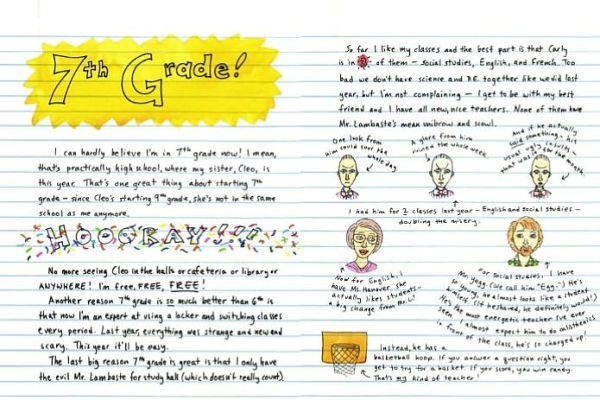 7th Grade!
I can hardly believe I'm in 7th grade now! I mean,
that's practically high school, where my sister, Cleo, is
this year. That's one great thing about starting 7th
grade - since Cleo's starting 9th grade, she's not in the same
school as me anymore.
HOORAY!!!
No more seeing Cleo in the halls or cafeteria or library or
ANYWHERE! I'm free, FREE, FREE!
Another reason 7th grade is so much better than 6th is
that now I'm an expert at using a locker and switching classes
every period. Last year, everything was strange and new and
scary. This year it'll be easy.
The last big reason 7th grade is great is that I only have
the evil Mr. Lambaste for study hall (which doesn't really count).
So far I like my classes and the best part is that Carly
is in 3 of them - Social studies, English, and French. Too
bad we don't have science and P.E. together like we did last
year, but I'm not complaining - I get to be with my best
friend and I have all new, nice teachers. None of them have
Mr. Lambaste's mean unibrow and scowl.
One look from
him could sour the
whole day.
A glare from him
ruined the whole week.
And if he actually
said something - his
usual ugly insult -
that was it for the month.
I had him for 2 classes last year - English and social studies -
doubling the misery.
Now for English, I
have Ms. Hanover. She
actually likes students -
a big change from Mr. L!
For Social studies, I have
Mr. Yegg. (We call him "Egg.") He's
so young, he almost looks like a student
himself (if he shaved, he definitely would!)
He's the most energetic teacher I've ever
seen. I almost expect him to do calisthenics
in front of the class, he's so charged up!
Instead, he has a
basketball hoop. If you answer a question right, you
get to try for a basket. If you score, you win candy.
That's my kind of teacher!